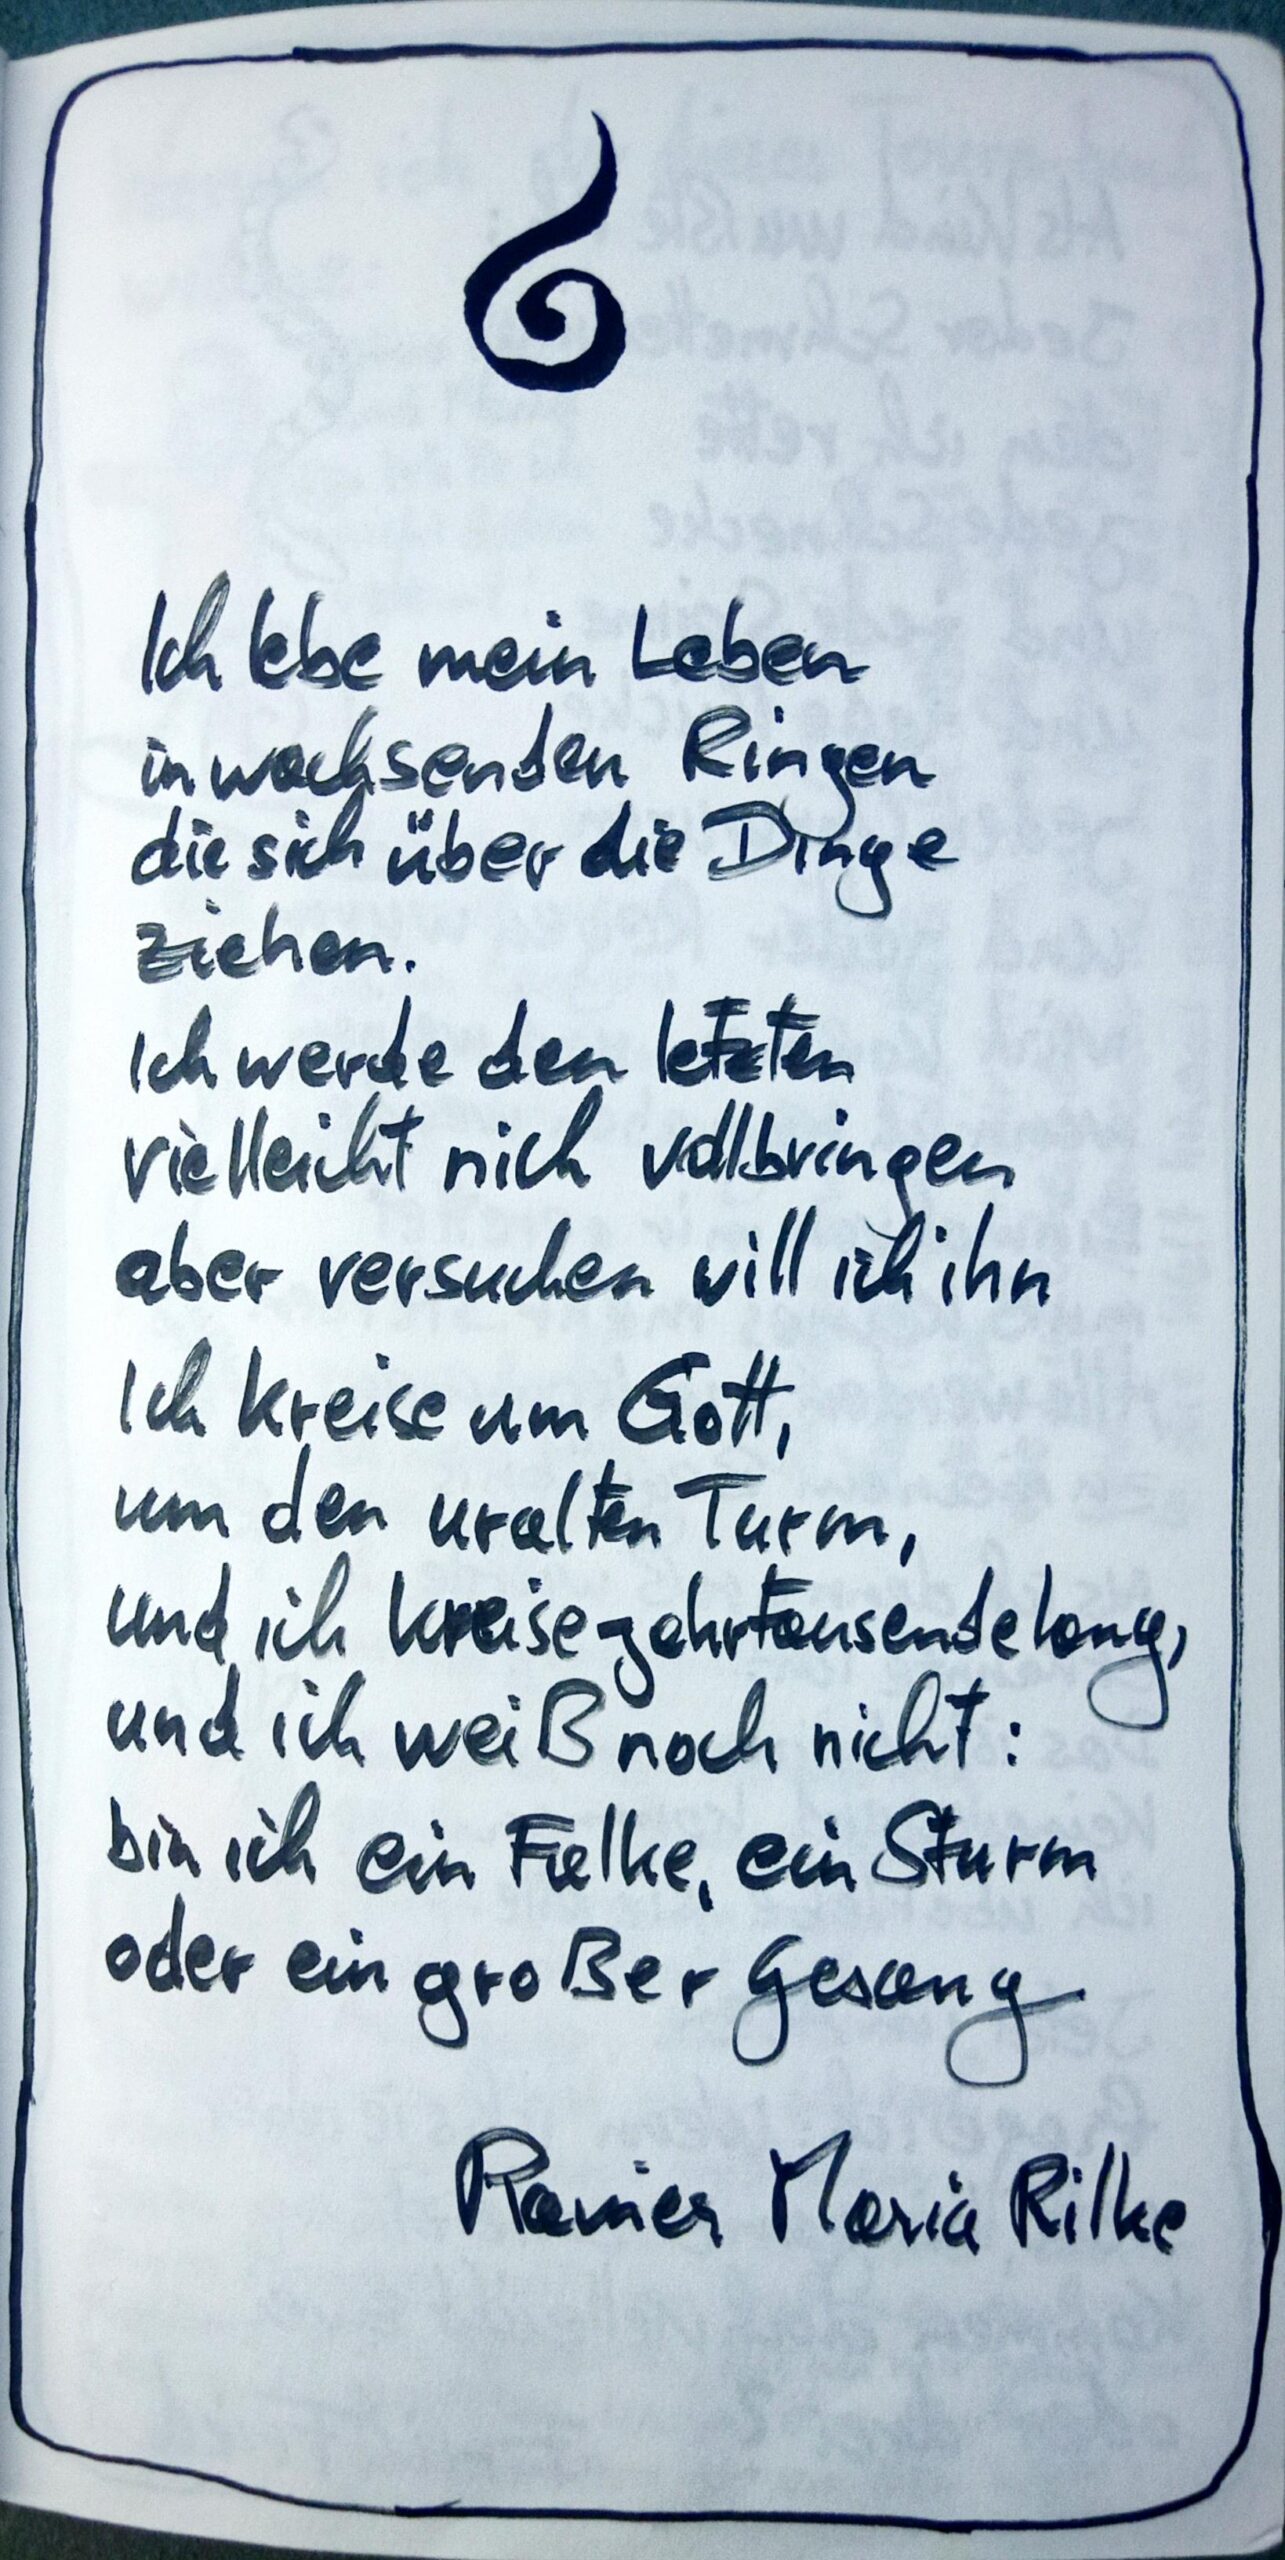 Ich lebe mein Leben
in wachsenden Ringen
die sich über die Dinge
ziehen.
Ich werde den letzten
vielleicht nich vollbringen
aber versuchen will ich ihn
Ich kreise um Gott,
um den uralten Turm,
und ich kreise jahrtausendelang,
und ich weiß noch nicht:
bin ich ein Falke, ein Sturm
oder ein großer Gesang.
Rainer Maria Rilke